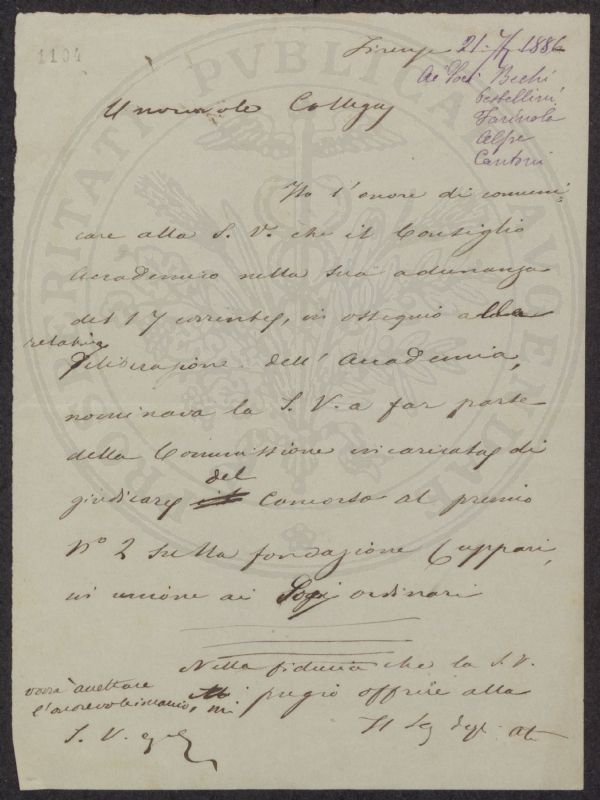 1104
Firenze 21. 7 1886
Ai Soci Bechi
Pestellini
Farinola
Alpe
Cantoni
Onorevole Collega
Ho l'onore di comuni-
care alla S. V. che il Consiglio
Accademico nella sua adunanza
del 17 corrente, in ossequio alla
relativa
deliberazione dell'Accademia,
nominava la S. V. a far parte
della Commissione incaricata di
del
giudicare il Concorso al premio
No 2 sulla fondazione Cuppari,
in unione ai Soci ordinari
Nella fiducia che la S. V.
vorrà accettare
l'onorevole incarico, mi pregio offrire alla
S. V.
Il Seg
PROSPERITATI PVBLICAE AVGENDAE